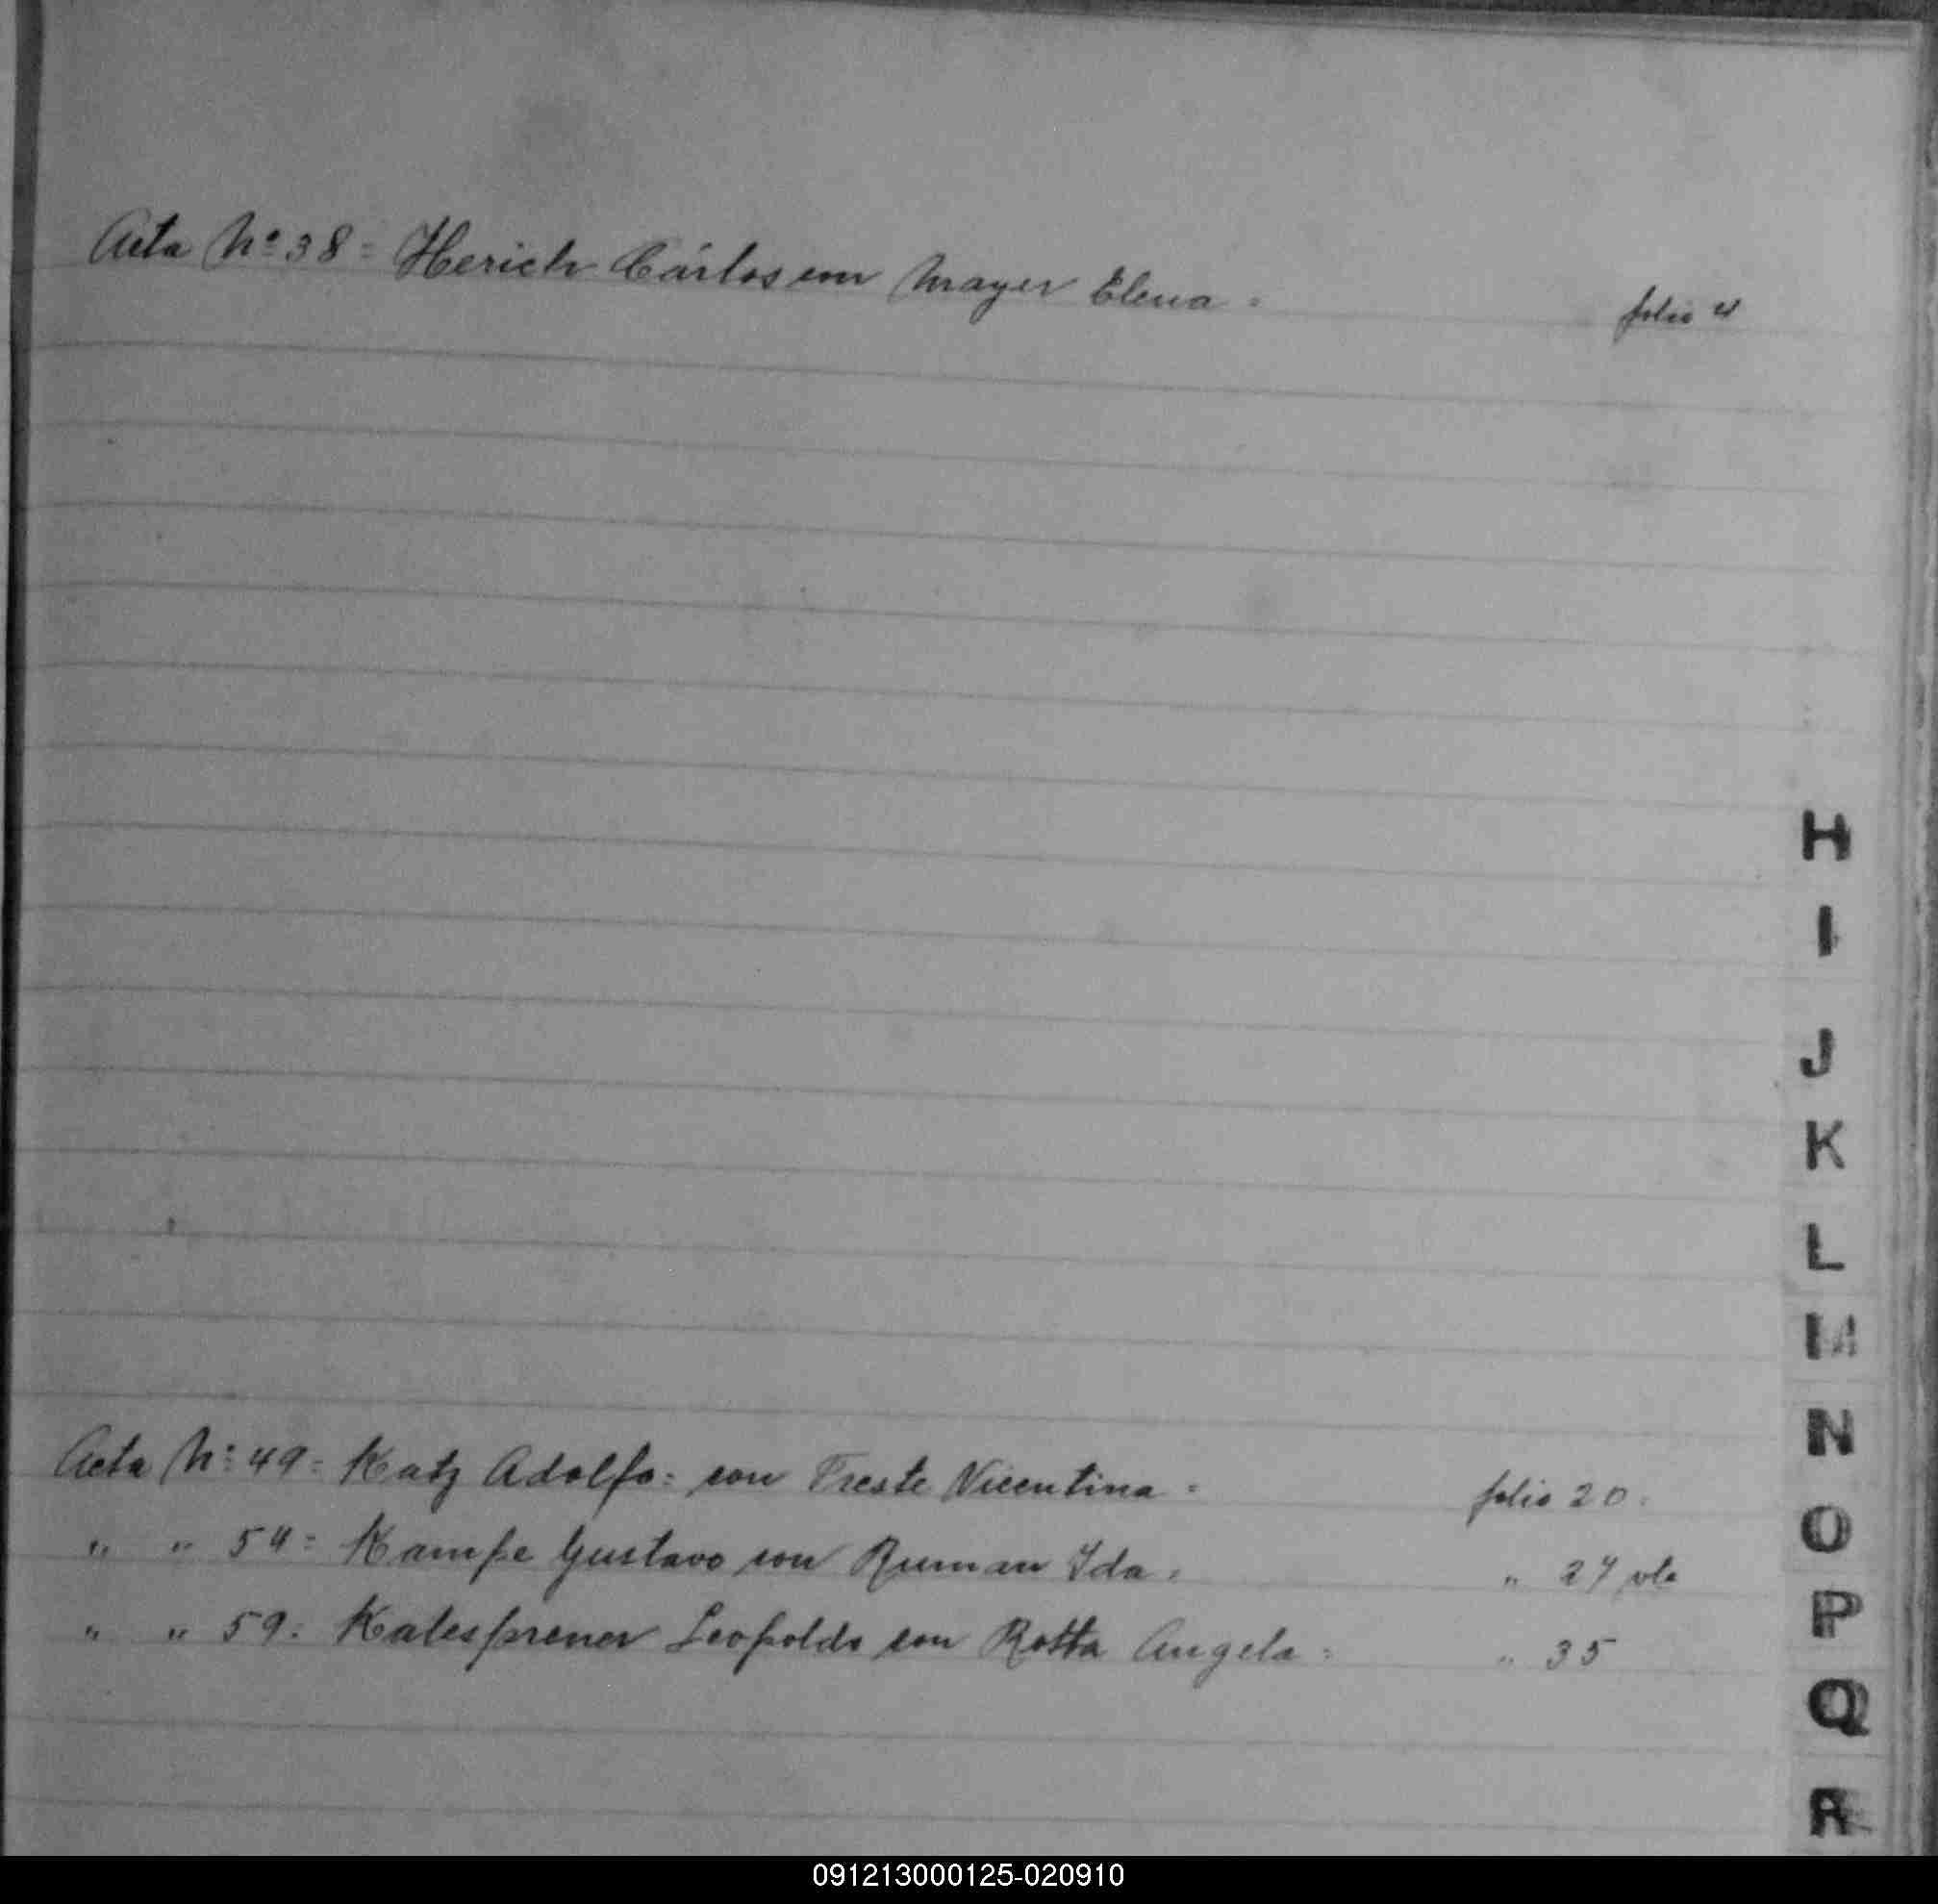 Acta Nº 38 = Herich Cárlos con Mayer Elena = folio 4
H
I
J
K
L
M
Acta Nº 49 = Katz Adolfo = con Treste Vicentina = folio 20.
N
" " 54 = Kampe Gustavo con Ruman Ida = " 27 vta
O
" " 59 = Kalesprener Leopoldo con Rotta Angela = " 35
P
Q
R
091213000125-020910